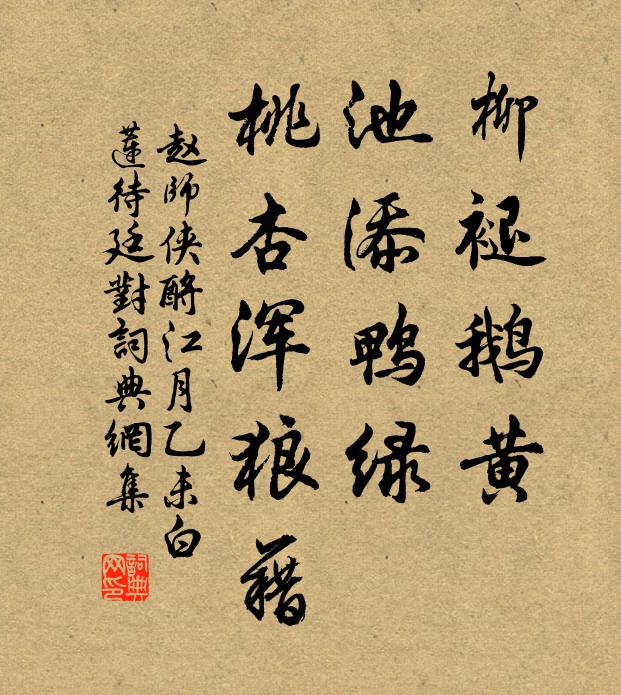 柳褪鹅黄
池添鸭绿
桃杏浑狼藉
赵师侠酹江月乙未白
莲待廷對詞典網集
詞典网印